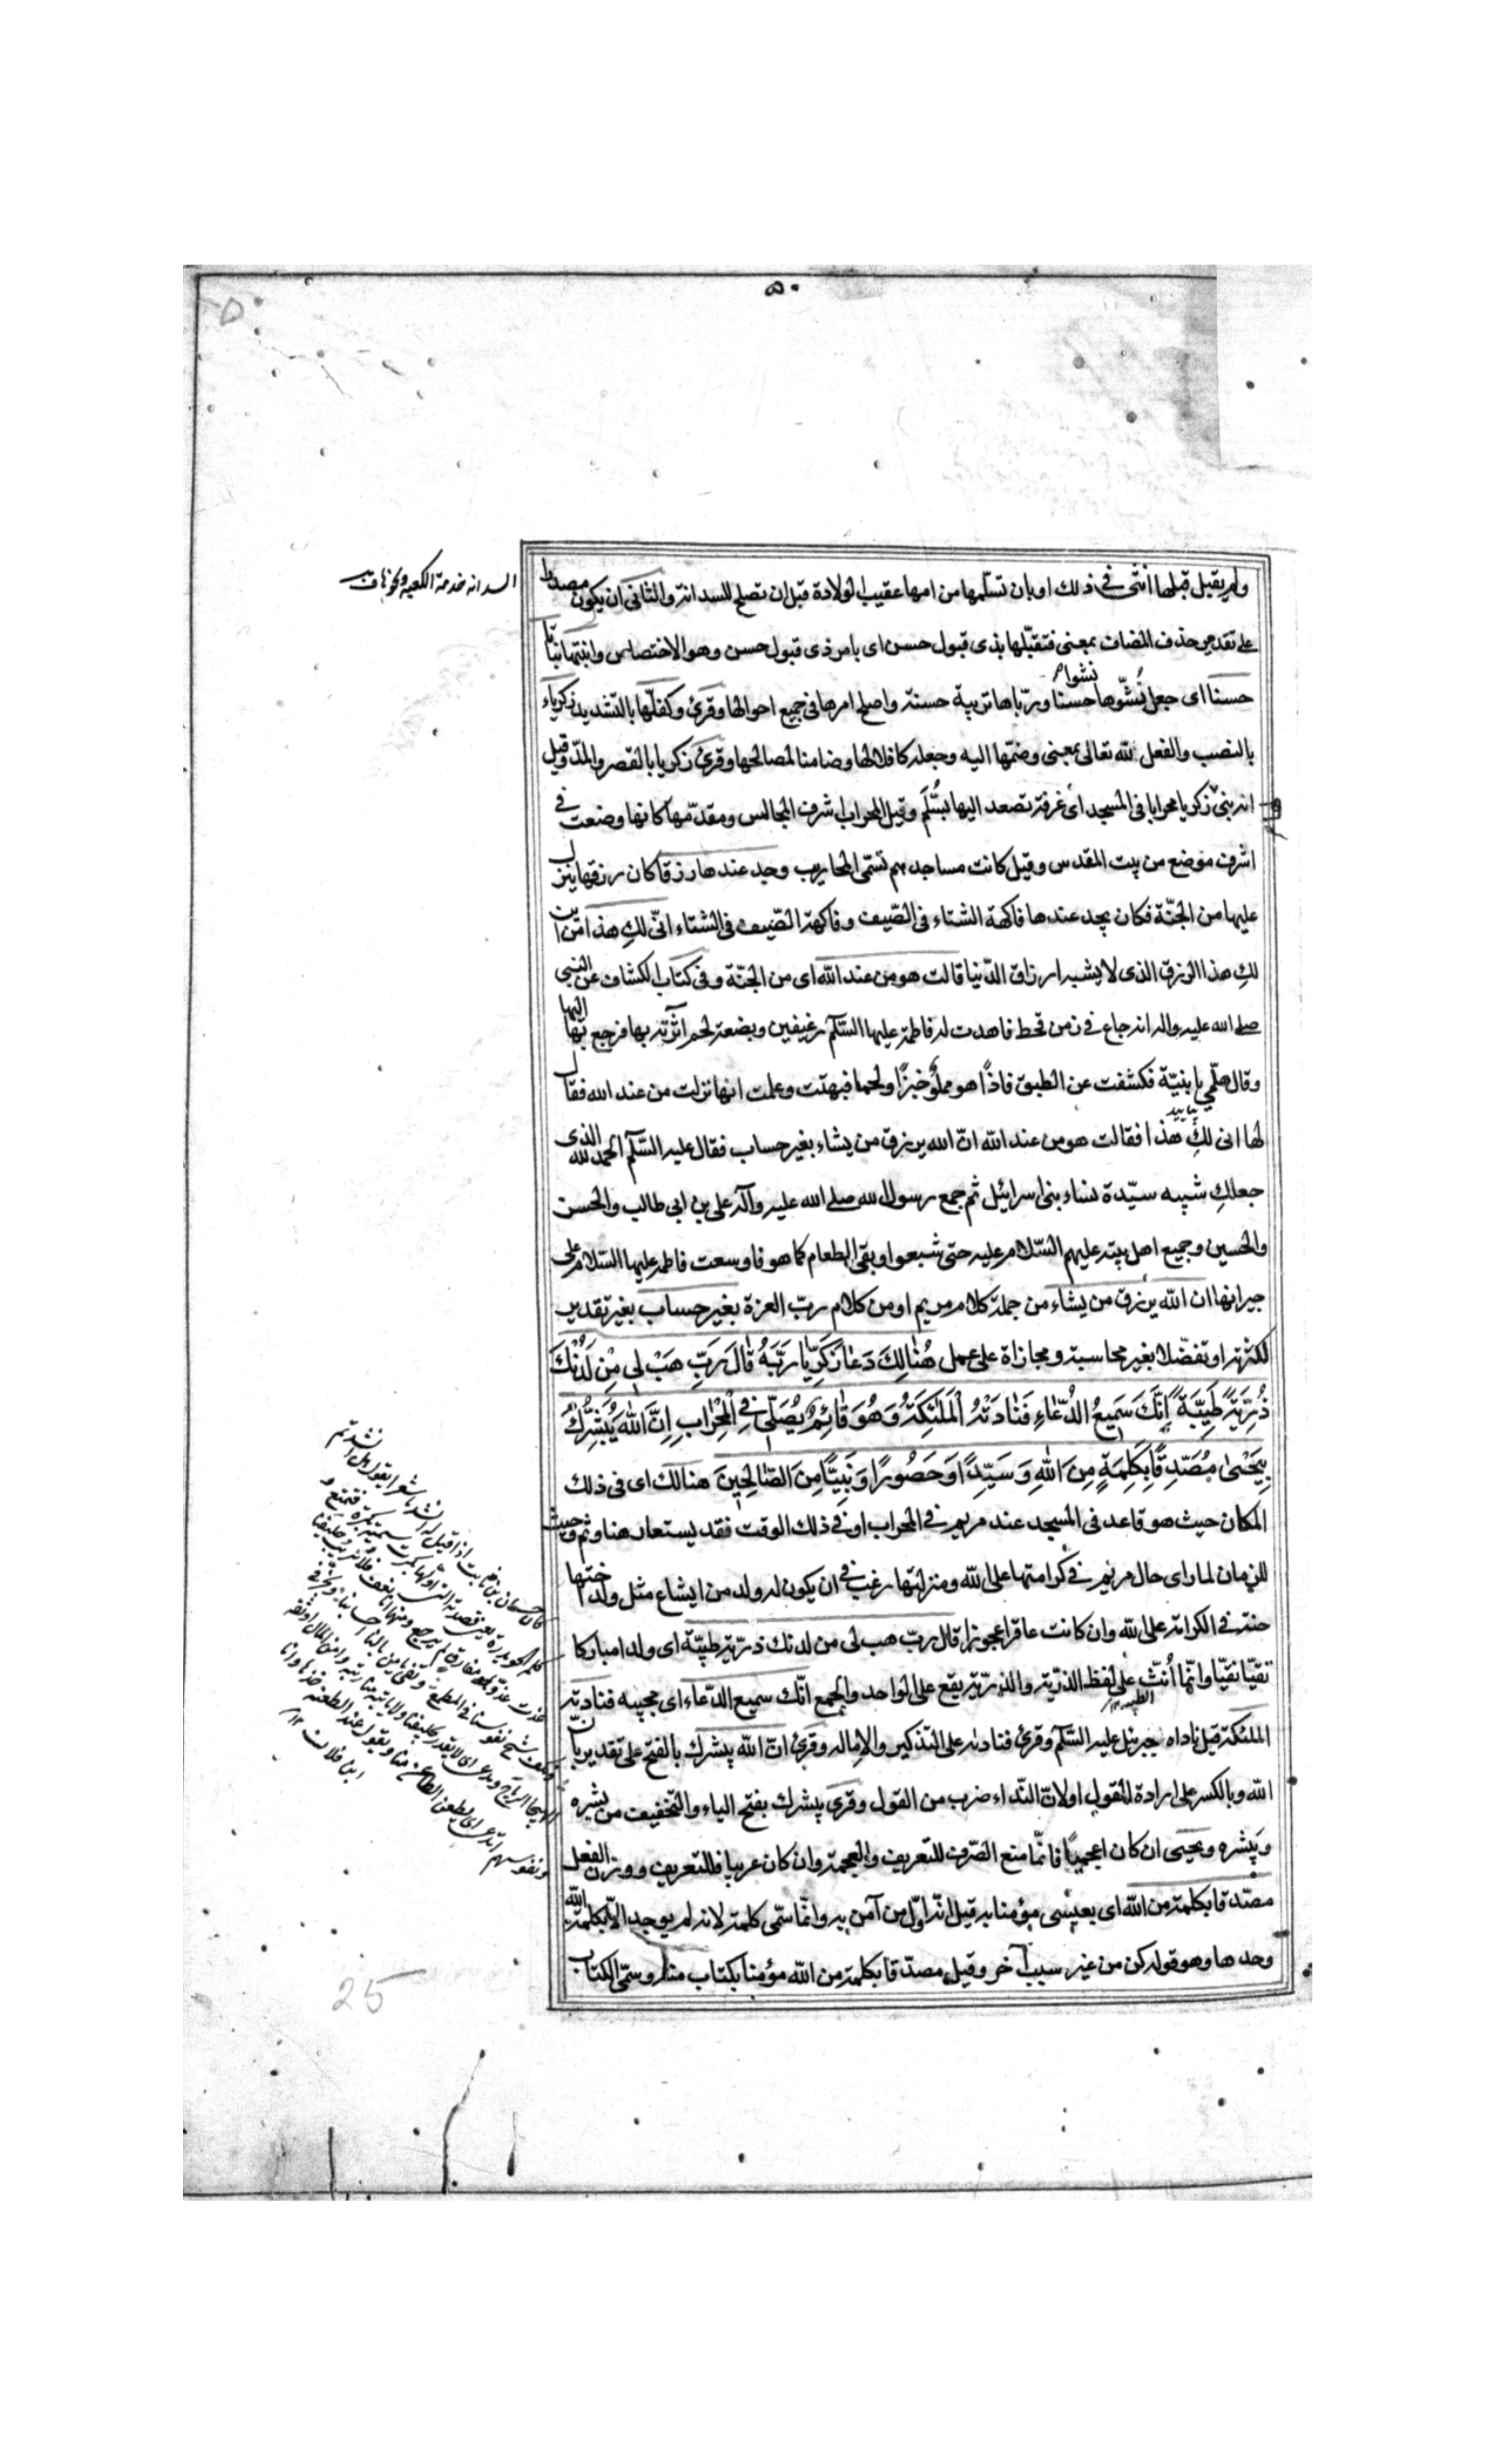 ٥٠
ولم يقبل قبلها انثى فى ذلك او بان تسلّمها من امها عقيب الولادة قبل ان تصلح للسدانة والثانى ان يكون مصدرا
على تقدير حذف المضاف بمعنى فتقبّلها بذى قبول حسن اى بامر ذى قبول حسن وهو الاختصاص وانبتها نباتا
نشوا
حسنا اى جعل نُشُوّها حسنا وربّاها تربية حسنة واصلح امرها فى جميع احوالها وقرئ وكفلّها بالتشديد زكرياء
بالنصب والفعل لله تعالى بمعنى وضمّها اليه وجعله كافلا لها وضامنا لمصالحها وقرئ زكريا بالقصر والمدّ وقيل
انه بنى زكريا محرابا فى المسجد اى غرفة تصعد اليها بسُلَّم وقيل المحراب اشرف المجالس ومقدّمها كانها وضعت فى
اشرف موضع من بيت المقدس وقيل كانت مساجدهم تسمّى المحاريب وجد عندها رزقا كان رزقها ينزل
عليها من الجنّة فكان يجد عندها فاكهة الشتاء فى الصّيف وفاكهة الصّيف فى الشتاء انّى لكِ هذا من اين
لكِ هذا الرزق الذى لا يشبه ارزاق الدّنيا قالت هو من عند الله اى من الجنّة وفى كتاب الكشاف عن النبى
صلى الله عليه واله انه جاع فى زمن قحط فاهدت له فاطمة عليها السّلم رغيفين وبضعة لحم آثرته بها فرجع بها اليها
وقال هلمّي يا بنيّة فكشفت عن الطبق فاذاً هو مملوّ خبزًا ولحما فبهتت وعلمت انها نزلت من عند الله فقال
لها انى لكِ هذا فقالت هو من عند الله انّ الله يرزق من يشاء بغير حساب فقال عليه السّلم الحمد لله الذى
جعلكِ شبيه سيّدة نساء بنى اسرائيل ثم جمع رسول الله صلى الله عليه وآله على بن ابى طالب والحسن
والحسين وجميع اهل بيته عليهم السّلام عليه حتى شبعوا وبقى الطعام كما هو فاوسعت فاطمة عليها السّلام على
جيرانها ان الله يرزق من يشاء من جملة كلام مريم او من كلام ربّ العزة بغير حساب بغير تقدير
لكثرته او تفضّلا بغير محاسبة ومجازاة على عمل هُنٰالِكَ دَعٰا زَكَرِيّٰا رَبَّهُ قٰالَ رَبِّ هَبْ لِى مِنْ لَدُنْكَ
ذُرِّيَّةً طَيِّبَةً اِنَّكَ سَمِيعُ الدُّعٰاءِ فَنٰادَتْهُ الْمَلٰئِكَةُ وَهُوَ قٰائِمٌ يُصَلِّى فِى الْمِحْرٰابِ اِنَّ اللّٰهَ يُبَشِّرُكَ
بِيَحْيىٰ مُصَدِّقًا بِكَلِمَةٍ مِنَ اللّٰهِ وَسَيِّدًا وَحَصُورًا وَنَبِيًّا مِنَ الصّٰالِحِينَ هنالك اى فى ذلك
المكان حيث هو قاعد فى المسجد عند مريم فى المحراب او فى ذلك الوقت فقد يستعار هنا وثم وحيث
للزمان لما راى حال مريم فى كرامتها على الله ومنزلتها رغب فى ان يكون له ولد من ايشاع مثل ولد اختها
حنة فى الكرامة على الله وان كانت عاقرا عجوزا قال ربّ هب لى من لدنك ذرّية طيّبة اى ولدا مباركا
تقيّا نقيّا وانّما أُنّث على لفظ الذرّية والذرّية يقع على الواحد والجمع انّك سميع الدّعاء اى مجيبه فنادته
الطيبة ١٢
الملئكة قيل ناداه جبرئيل عليه السّلم وقرئ فناداه على التذكير والاماله وقرئ انّ الله يبشرك بالفتح على تقدير بانّ
الله وبالكسر على ارادة القول او لانّ النّداء ضرب من القول وقرئ يبشرك بفتح الياء والتخفيف من بشره
ويبشره ويحيى ان كان اعجميّا فانّما منع الصّرف للتعريف والعجمة وان كان عربيا فللتعريف ووزن الفعل
مصّدقا بكلمة من الله اى بعيسى مؤمنا به قيل انّه اوّل من آمن به وانّما سمّى كلمة لانه لم يوجد الّا بكلمة الله
وحدها وهو قوله كن من غير سبب آخر وقيل مصدّقا بكلمة من الله مؤمنا بكتاب منه وسمّى الكتاب
السدانه خدمة الكعبه
25